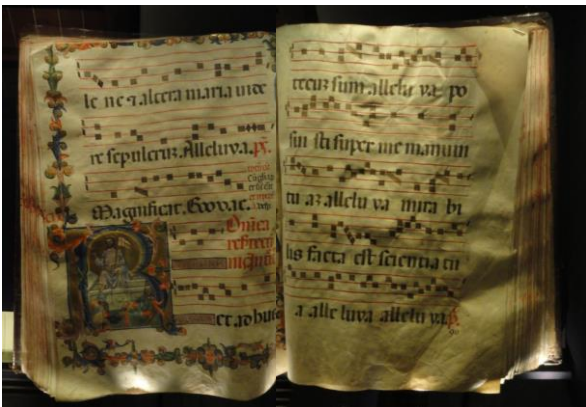 le ne ⁊ altera maria vide
re sepulcrum. Alleluya. ps.
Magnificat. Evovae.
Dnica
resurrec
et ad huc
tecuz sum allelu ya. po
sui sti super me manum
tu az allelu ya mira bi
lis facta est scientia tu
a alle luya allelu ya. p.